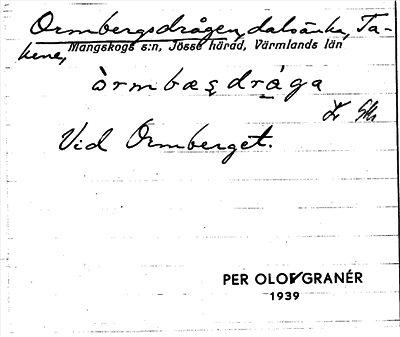 Ormbergsdrågen, dalsänka, Ta-
Mangskogs s:n, Jösse härad, Värmlands län
kene,
òrmbæşdrága
Vid Ormberget.
PER OLOV GRANÉR
1939